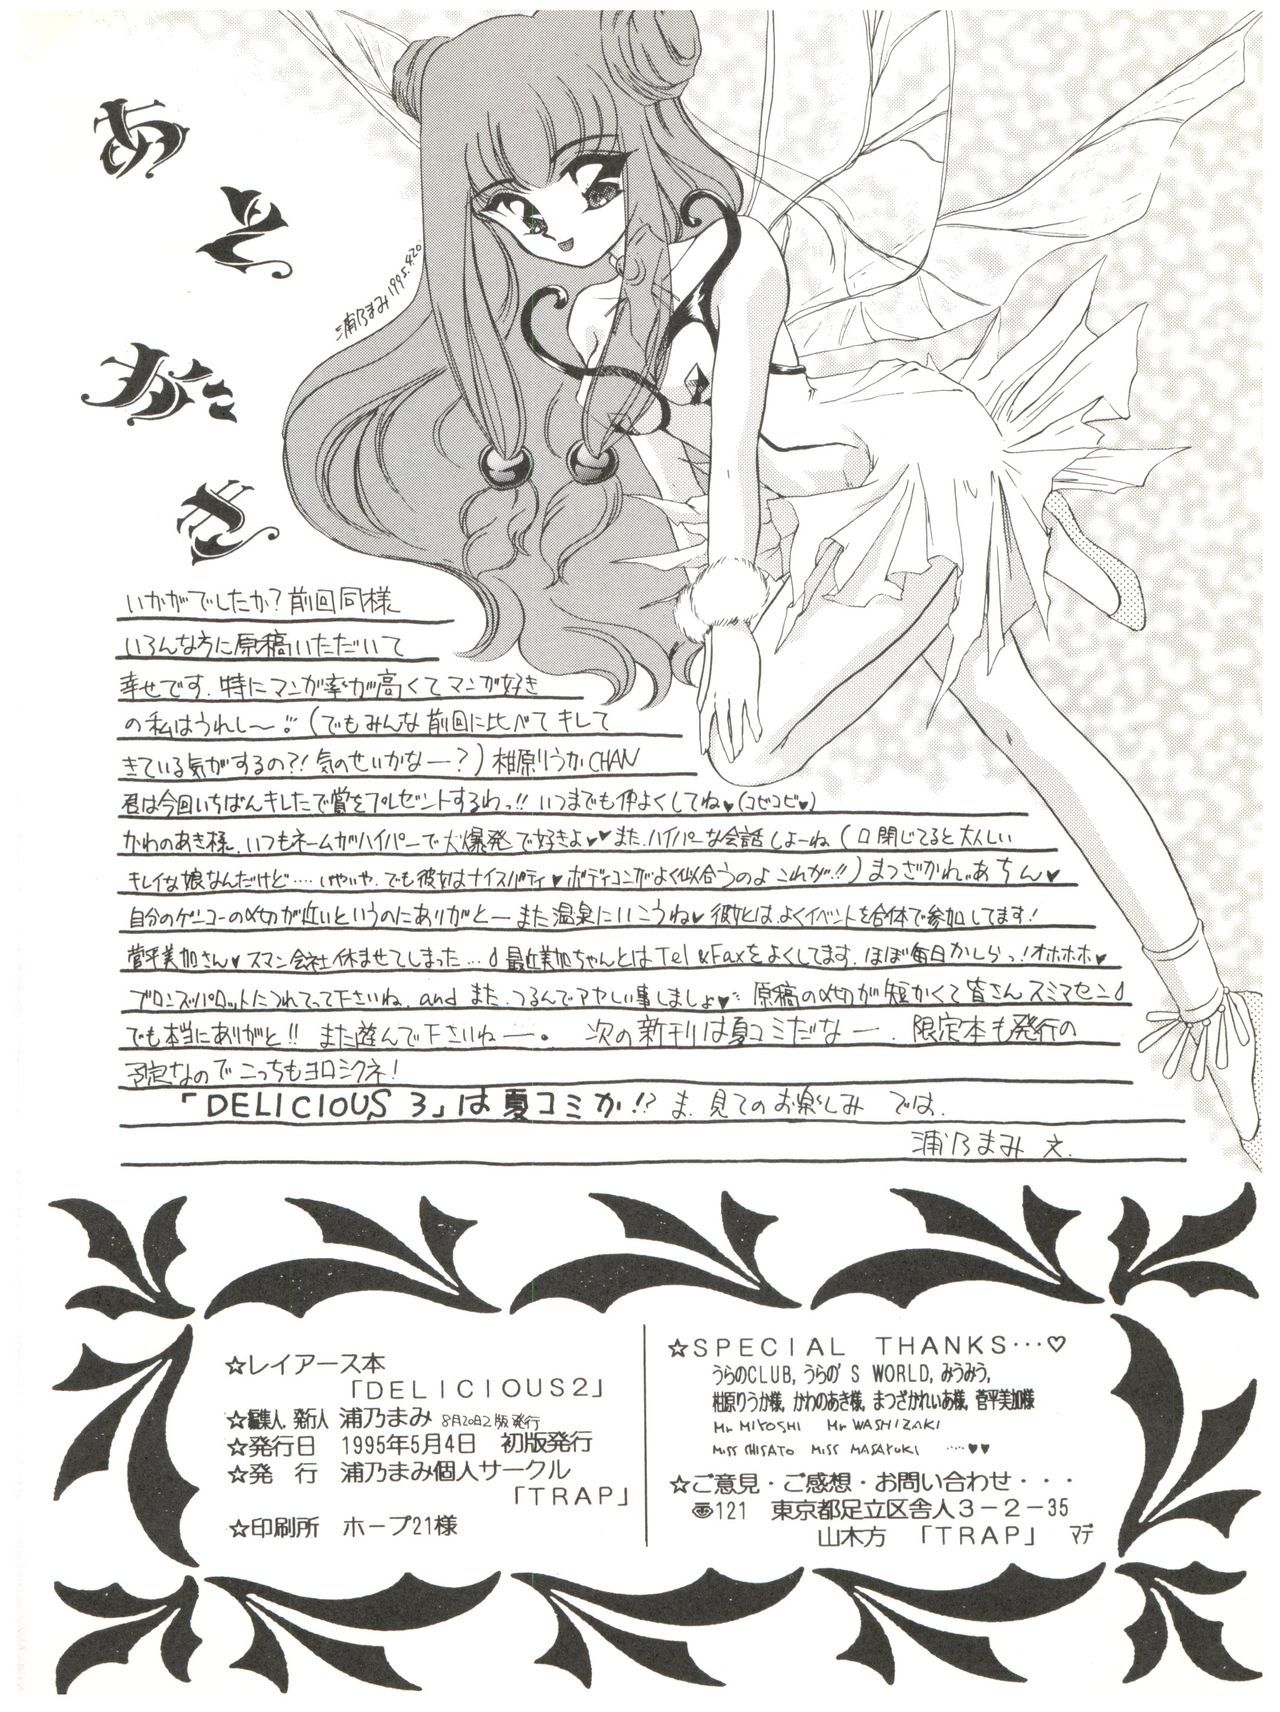 あとがき
浦乃まみ 1995.4.20
いかがでしたか?前回同様
いろんな方に原稿いただいて
幸せです.特にマンガ率が高くてマンガ好き
の私はうれし〜!!(でもみんな前回に比べてキレて
きている気がするの?!気のせいかなー?)柑原りうかCHAN
君は今回いちばんキレたで賞をプレゼントするわっ!!いつまでも仲よくしてね♥(コピコピ♥)
かわのあき様.いつもネームがハイパーで大爆発で好きよ♥♥また.ハイパーな会話しよーね(口閉じてると大人しい
キレイな娘なんだけど……いやいや.でも彼女はナイスバディ♥ボディコンがよく似合うのよこれが!!)まつざかれぃあちん♥
自分のゲンコーの〆切が近いというのにありがとーまた温泉にいこうね♥彼女とは、よくイベントを合体で参加してます!
菅平美加さん♥スマン会社休ませてしまった…♪最近美加ちゃんとはTel&Faxをよくしてます.ほぼ毎日かしらっ!オホホホ♥
ブロンズパロットにつれてって下さいね.andまた.つるんでアヤしい事しましょ♥原稿の〆切が短かくて皆さんスミマセン♪
でも本当にありがと!!また遊んで下さいねー。次の新刊は夏コミだなー.限定本も発行の
予定なのでこっちもヨロシクネ!
「DELICIOUS 3」は夏コミか!?ま.見てのお楽しみ では.
浦乃まみ 文.
☆レイアース本
「DELICIOUS2」
☆編集人、発行人 浦乃まみ 8月20日2版発行
☆発行日 1995年5月4日 初版発行
☆発 行 浦乃まみ個人サークル
「TRAP」
☆印刷所 ホープ21様
☆SPECIAL THANKS…♡
うらのCLUB,うらの'S WORLD,みうみう,
柑原りうか様,かわのあき様,まつざかれいあ様,菅平美加様
Mr MIYOSHI Mr WASHIZAKI
MISS CHISATO MISS MASAYUKI ……♥♥
☆ご意見・ご感想・お問い合わせ・・・
〠121 東京都足立区舎人3-2-35
山木方 「TRAP」 マデ